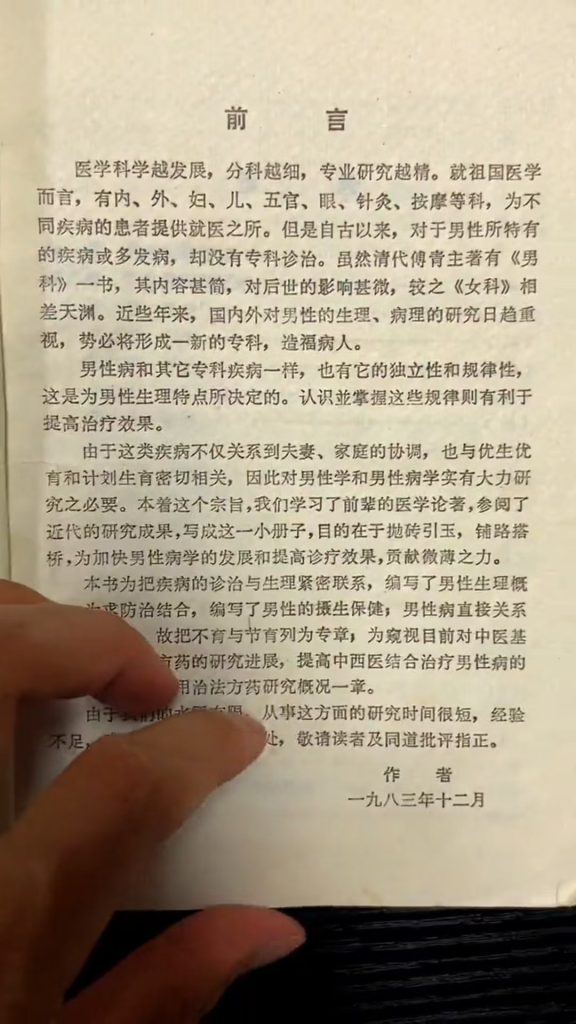 前 言
医学科学越发展，分科越细，专业研究越精。就祖国医学
而言，有内、外、妇、儿、五官、眼、针灸、按摩等科，为不
同疾病的患者提供就医之所。但是自古以来，对于男性所特有
的疾病或多发病，却没有专科诊治。虽然清代傅青主著有《男
科》一书，其内容甚简，对后世的影响甚微，较之《女科》相
差天渊。近些年来，国内外对男性的生理、病理的研究日趋重
视，势必将形成一新的专科，造福病人。
男性病和其它专科疾病一样，也有它的独立性和规律性，
这是为男性生理特点所决定的。认识並掌握这些规律则有利于
提高治疗效果。
由于这类疾病不仅关系到夫妻、家庭的协调，也与优生优
育和计划生育密切相关，因此对男性学和男性病学实有大力研
究之必要。本着这个宗旨，我们学习了前辈的医学论著，参阅了
近代的研究成果，写成这一小册子，目的在于抛砖引玉，铺路搭
桥，为加快男性病学的发展和提高诊疗效果，贡献微薄之力。
本书为把疾病的诊治与生理紧密联系，编写了男性生理概
求防治结合，编写了男性的摄生保健；男性病直接关系
故把不育与节育列为专章；为窥视目前对中医基
方药的研究进展，提高中西医结合治疗男性病的
用治法方药研究概况一章。
由于我们的水平有限，从事这方面的研究时间很短，经验
不足，处，敬请读者及同道批评指正。
作 者
一九八三年十二月